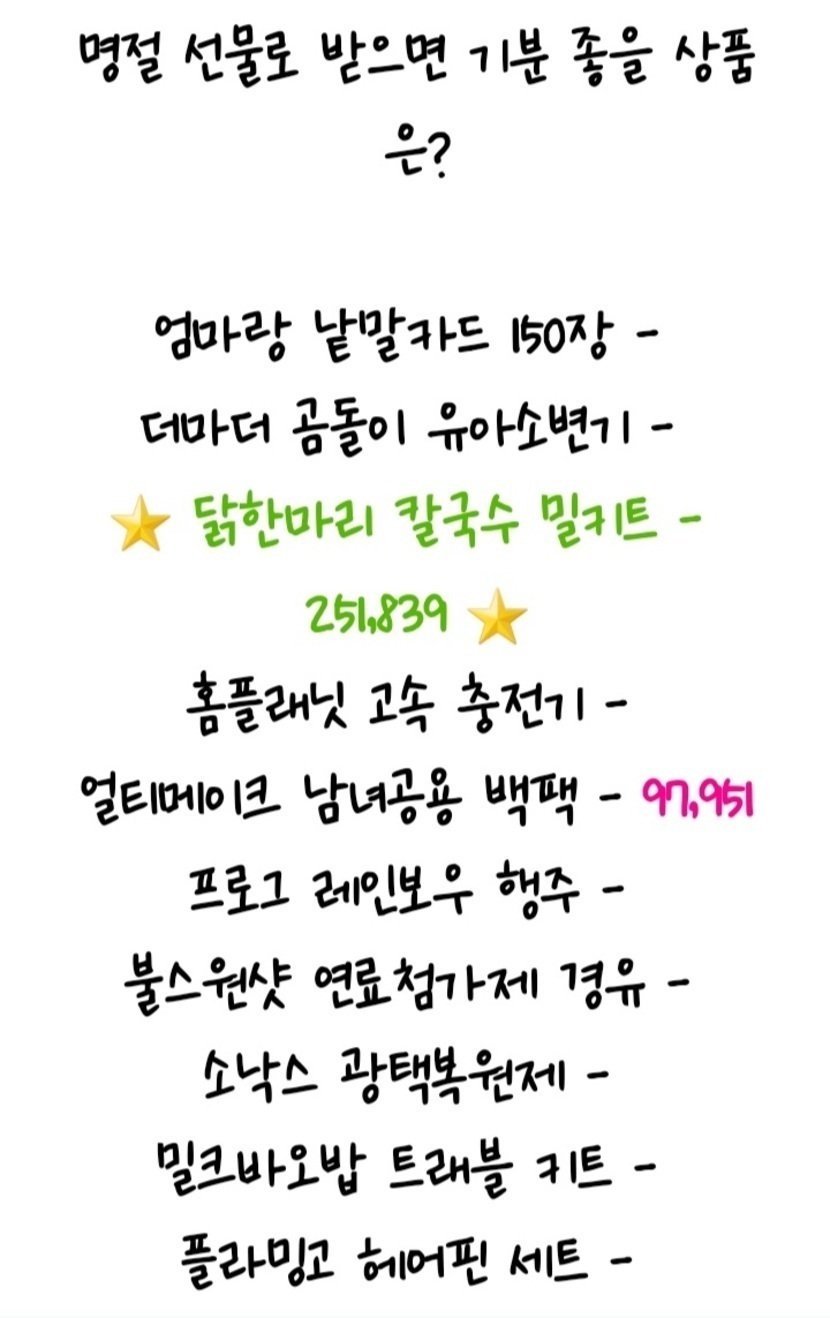 명절 선물로 받으면 기분 좋을 상품
은?
엄마랑 낱말카드 150장 -
데마더 곰돌이 유아소변기 -
⭐ 닭한마리 칼국수 밀키트 -
251,839 ⭐
홈플래닛 고속 충전기 -
얼티메이크 남녀공용 백팩 - 97,951
프로그 레인보우 행주 -
불스원샷 연료첨가제 경유 -
소낙스 광택복원제 -
밀크바오밥 트래블 키트 -
플라밍고 헤어핀 세트 -